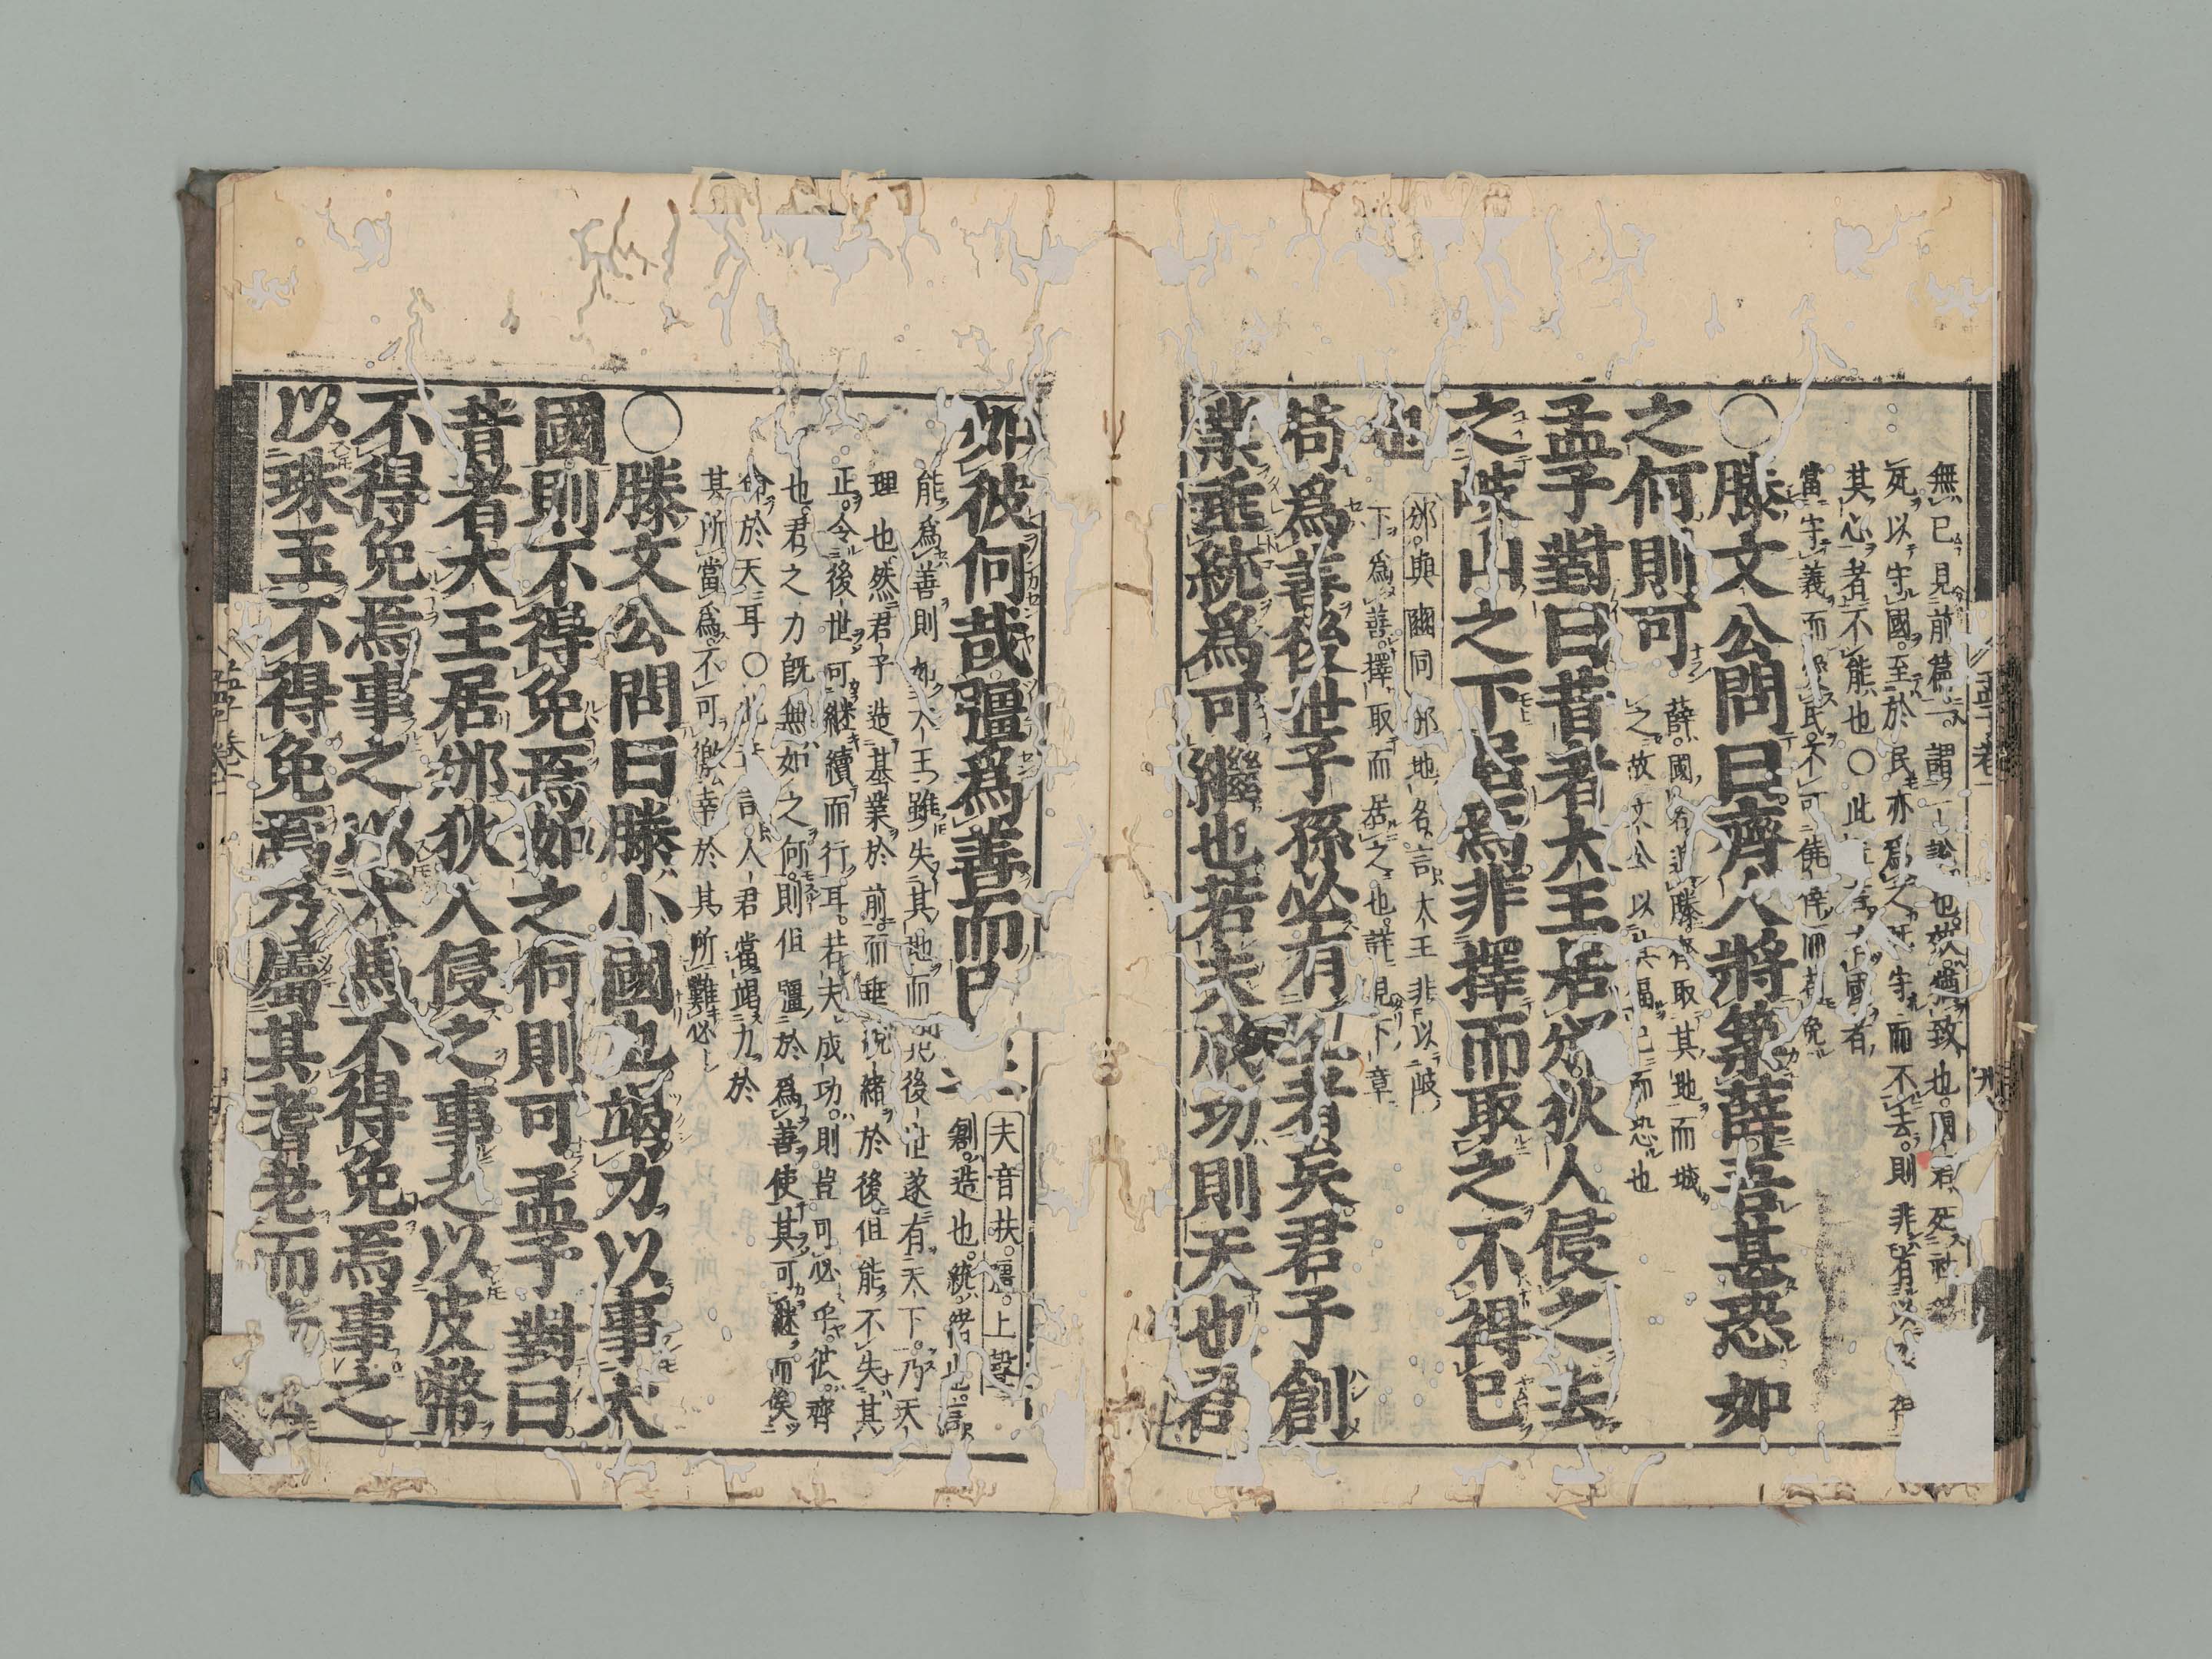 無已見前篇一謂一說也效猶致也國君死社稷
死以守國至於民亦爲之死守而不去則非有以深
其心者不能也〇此章言有國者
當守義而愛民不可僥倖而苟免
〇滕文公問曰齊人將築薛吾甚恐如
之何則可
薛國名近滕齊取其地而城
之故文公以其偪己而恐也
孟子對曰昔者大王居邠狄人侵之去
之岐山之下居焉非擇而取之不得已
也
邠與豳同邠地名言太王非以岐
下爲善擇取而居之也詳見下章
苟爲善後世子孫必有王者矣君子創
業垂統爲可繼也若夫成功則天也君
如彼何哉彊爲善而已
夫音扶彊上聲
創造也統緒也言
能爲善則如大王雖失其地而其後世遂有天下乃天
理也然君子造基業於前而垂統緒於後但能不失其
正令後世可繼續而行耳若夫成功則豈可必乎彼齊
也君之力既無如之何則但彊於爲善使其可繼而俟
命於天耳〇此章言人君當竭力於
其所當爲不可徼幸於其所難必
〇滕文公問曰滕小國也竭力以事大
國則不得免焉如之何則可孟子對曰
昔者大王居邠狄人侵之事之以皮幣
不得免焉事之以犬馬不得免焉事之
以珠玉不得免焉乃屬其耆老而
孟子卷一